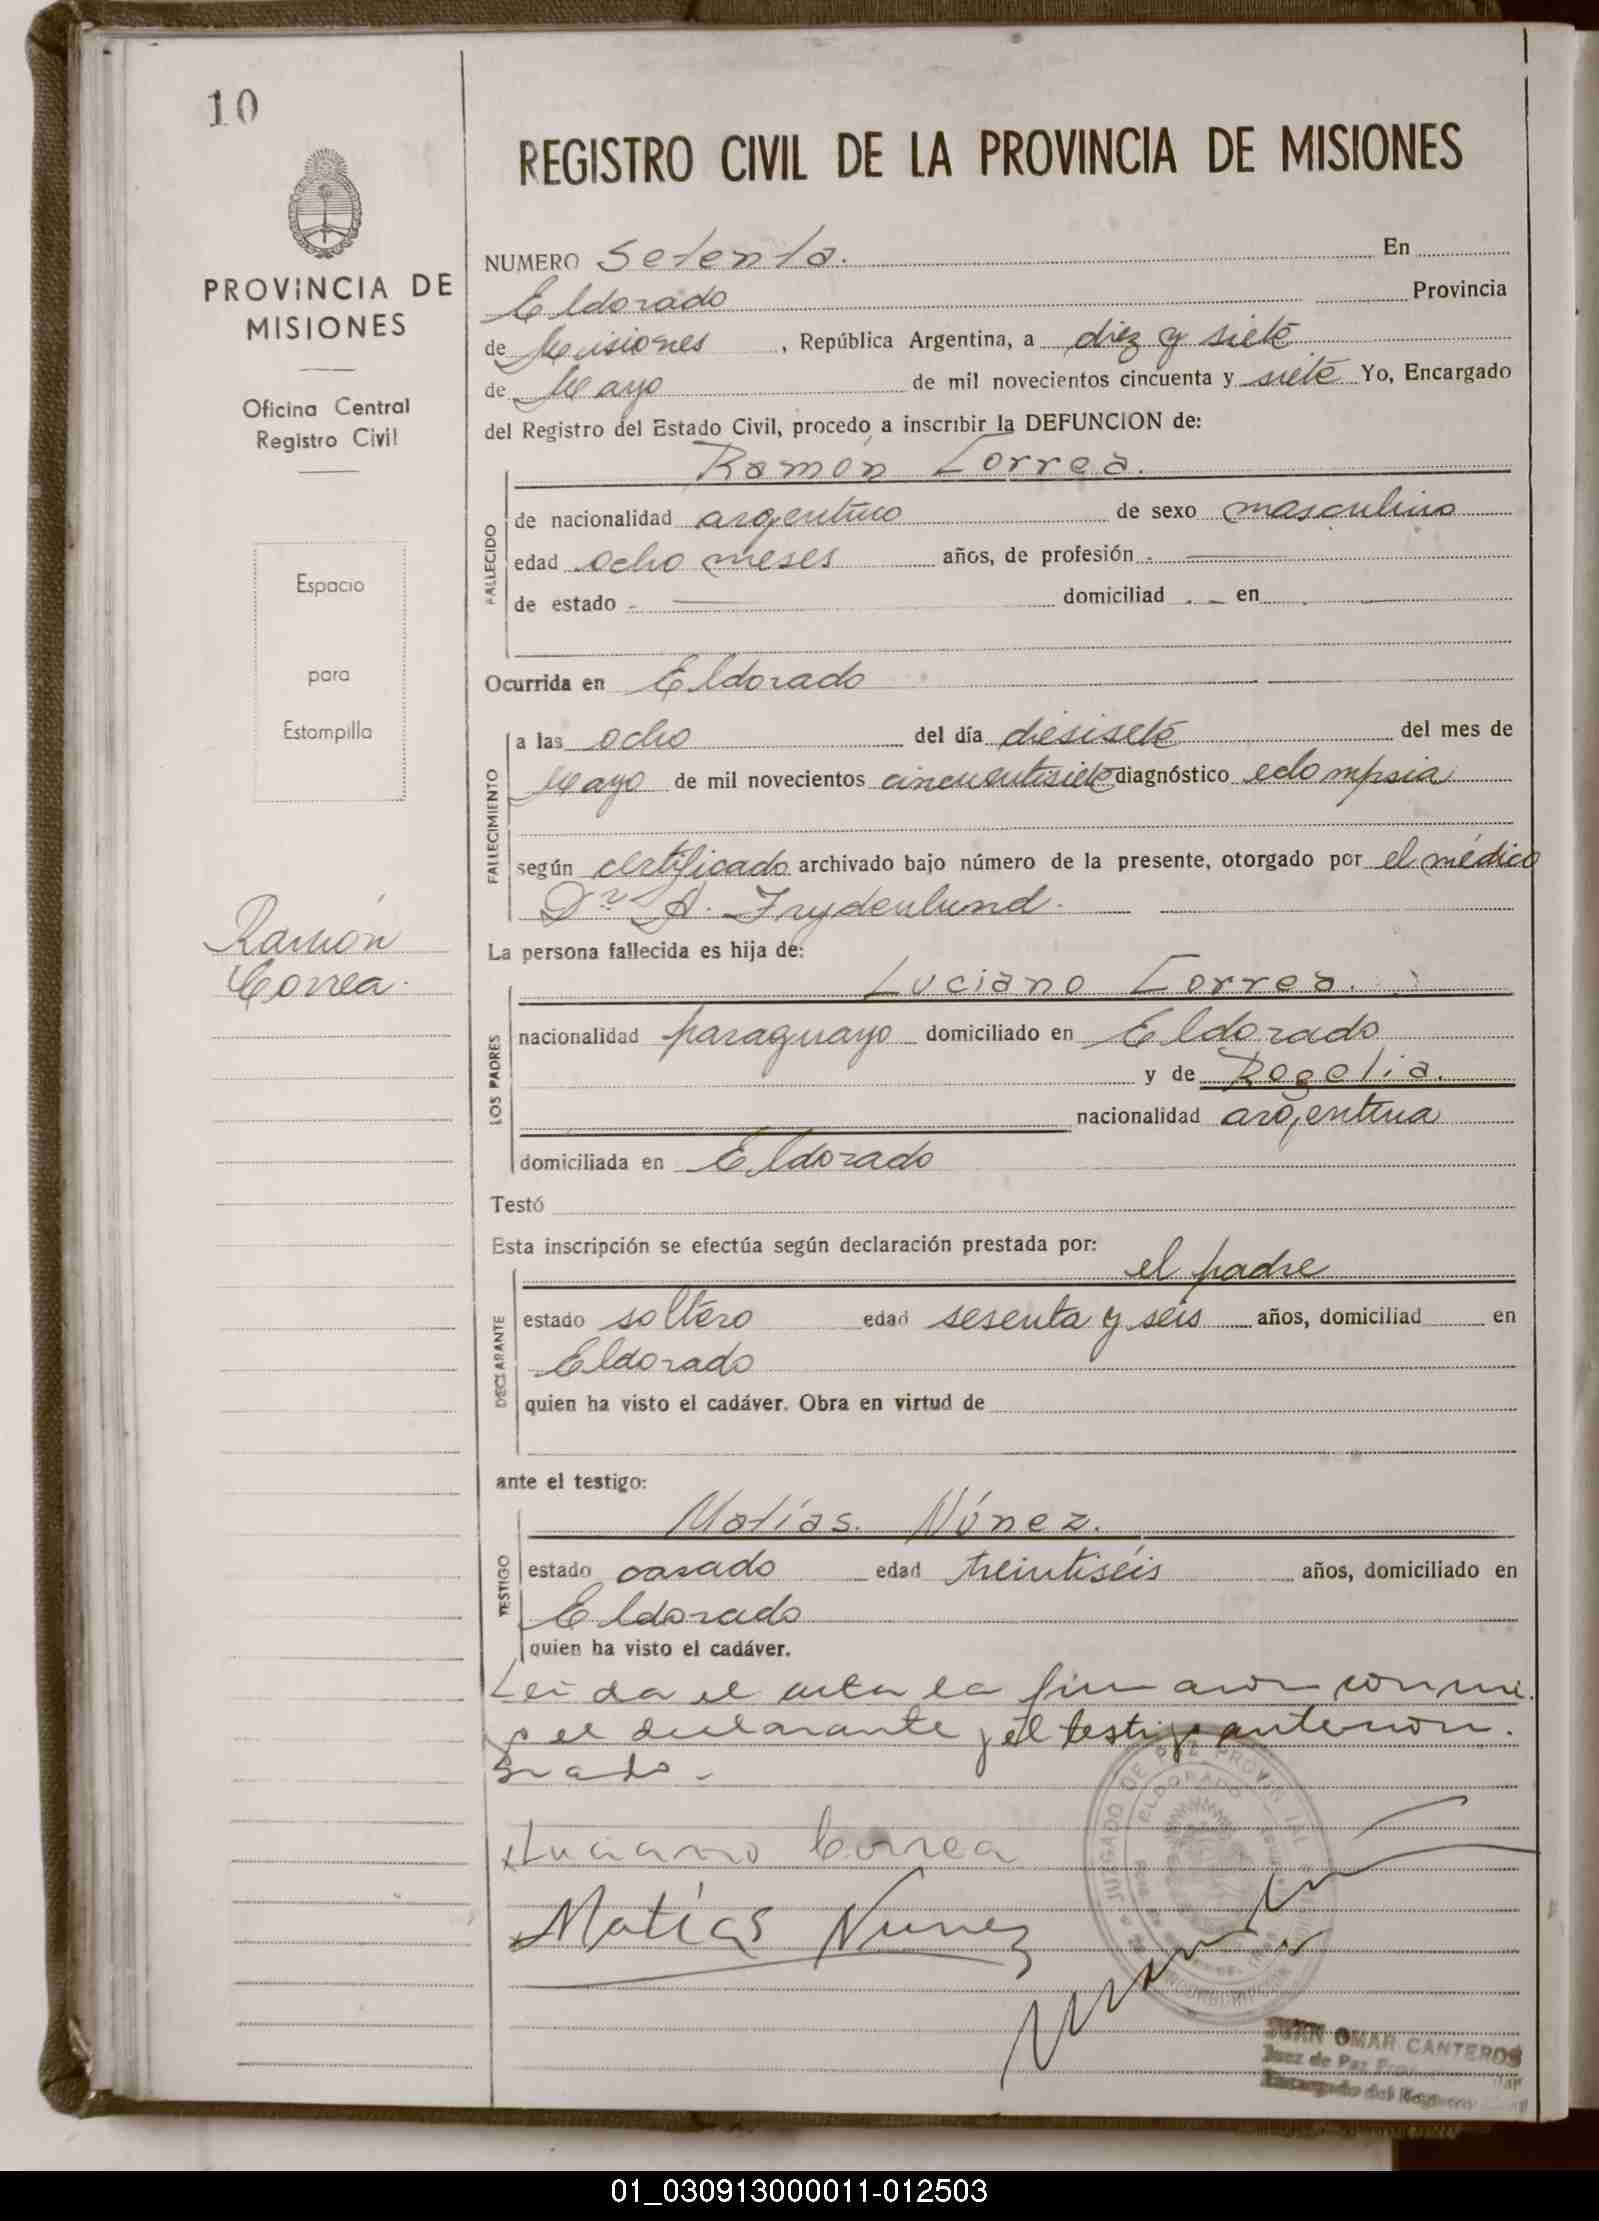 10
REGISTRO CIVIL DE LA PROVINCIA DE MISIONES
PROVINCIA DE
MISIONES
Oficina Central
Registro Civil
Espacio
para
Estampilla
Ramón
Correa.
NUMERO Setenta. En
Eldorado Provincia
de Misiones, República Argentina, a diez y siete
de Mayo de mil novecientos cincuenta y siete Yo, Encargado
del Registro del Estado Civil, procedo a inscribir la DEFUNCION de:
Ramón Correa.
FALLECIDO
de nacionalidad argentino de sexo masculino
edad ocho meses años, de profesión
de estado domiciliad en
Ocurrida en Eldorado
FALLECIMIENTO
a las ocho del día diesisete del mes de
Mayo de mil novecientos cincuentisiete diagnóstico eclampsia
según certificado archivado bajo número de la presente, otorgado por el médico
Dr. A. Frydenlund.
La persona fallecida es hija de:
Luciano Correa.
LOS PADRES
nacionalidad paraguayo domiciliado en Eldorado
y de Rogelia.
nacionalidad argentina
domiciliada en Eldorado
Testó
Esta inscripción se efectúa según declaración prestada por:
el padre
DECLARANTE
estado soltero edad sesenta y seis años, domiciliad en
Eldorado
quien ha visto el cadáver. Obra en virtud de
ante el testigo:
Matías. Núnez.
TESTIGO
estado casado edad treintiséis años, domiciliado en
Eldorado
quien ha visto el cadáver.
Leida el acta la firmaron conmi
go el declarante y el testigo anterior.
Luciano Correa
Matías Nunez
JUZGADO DE PAZ PROVINCIAL
ELDORADO
JUAN OMAR CANTEROS
Juez de Paz
Encargado del Registro
01_030913000011-012503